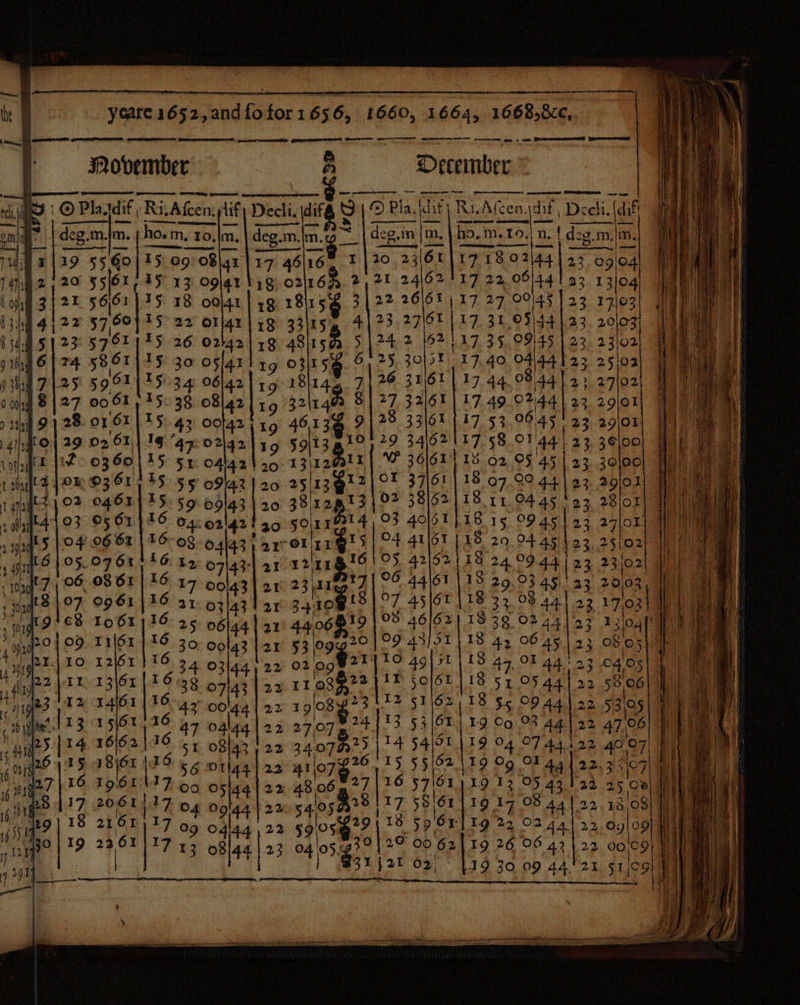 yeare 1652, and ſo for 1656, 1660, 1664, 1668,&c,
November December
☉ Pla. dif Ri. Aſcen. dif Decli. dif ☉ Pla. dif Ri. Aſcen. dif Decli. dif
deg.m. m. ho. m. 10. m. deg.m. m. deg.m m. ho. m. 10. m. deg.m. m.
1 19 55 60 15 09 08 41 17 46 16 1 20 23 61 17 18 02 44 23 09 04
2 20 55 61 15 13 09 41 18 02 16 2 21 24 62 17 22 06 44 23 13 04
3 21 56 61 15 18 00 41 18 18 15 3 22 26 61 17 27 00 45 23 17 03
4 22 57 60 15 22 01 41 18 33 15 4 23 27 61 17 31 05 44 23 20 03
5 23 57 61 15 26 02 42 18 48 15 5 24 2 62 17 35 09 45 23 23 02
6 24 58 61 15 30 05 41 19 03 15 6 25 30 51 17 40 04 44 23 25 02
7 25 59 61 15 34 06 42 19 18 14 7 26 31 61 17 44 08 44 23 27 02
8 27 00 61 15 38 08 42 19 32 14 8 27 32 61 17 49 02 44 23 29 01
9 28 01 61 15 43 00 42 19 46 13 9 28 33 61 17 53 06 45 23 29 01
10 29 02 61 15 47 02 42 19 59 13 10 29 34 62 17 58 01 44 23 30 00
11 ♐ 03 60 15 51 04 42 20 13 12 11 ♑ 36 61 18 02 05 45 23 30 00
12 01 03 61 15 55 09 43 20 25 13 12 01 37 61 18 07 00 44 23 29 01
13 02 04 61 15 59 09 43 20 38 12 13 02 38 62 18 11 04 45 23 28 01
14 03 05 61 16 04 02 42 20 50 11 14 03 40 61 18 15 09 45 23 27 01
15 04 06 61 16 08 04 43 21 01 11 15 04 41 61 18 20 04 45 23 25 02
16 05 07 61 16 12 07 43 21 12 11 16 05 42 62 18 24 09 44 23 23 02
17 06 08 61 16 17 00 43 21 23 11 17 06 44 61 18 29 03 45 23 20 03
18 07 09 61 16 21 03 43 21 34 10 18 07 45 61 18 33 08 44 23 17 03
19 08 10 61 16 25 06 44 21 44 06 19 08 46 62 18 38 02 44 23 13 04
20 09 11 61 16 30 00 43 21 53 09 20 09 43 51 18 42 06 45 23 08 05
21 10 12 61 16 34 03 44 22 02 09 21 10 49 51 18 47 01 44 23 04 05
22 11 13 61 16 38 07 43 22 11 08 22 11 50 61 18 51 05 44 22 58 06
23 12 14 61 16 43 00 44 22 19 08 23 12 51 62 18 55 09 44 22 53 05
13 15 61 16 47 04 44 22 27 07 24 13 53 61 19 00 03 44 22 47 06
25 14 16 62 16 51 08 43 22 34 07 25 14 54 61 19 04 07 44 22 40 07
26 15 18 61 16 56 01 44 22 41 07 26 15 55 62 19 09 01 44 22 33 07
27 16 19 61 17 00 05 44 22 48 06 27 16 57 61 19 13 05 43 22 25 08
28 17 20 61 17 04 09 44 22 54 05 28 17 58 61 19 17 08 44 22 18 08
29 18 21 61 17 09 04 44 22 59 05 29 18 59 61 19 22 02 44 22 09 09
30 19 22 61 17 13 08 44 23 04 05 30 20 00 62 19 26 06 43 22 00 09
31 21 02 19 30 09 44 21 51 09